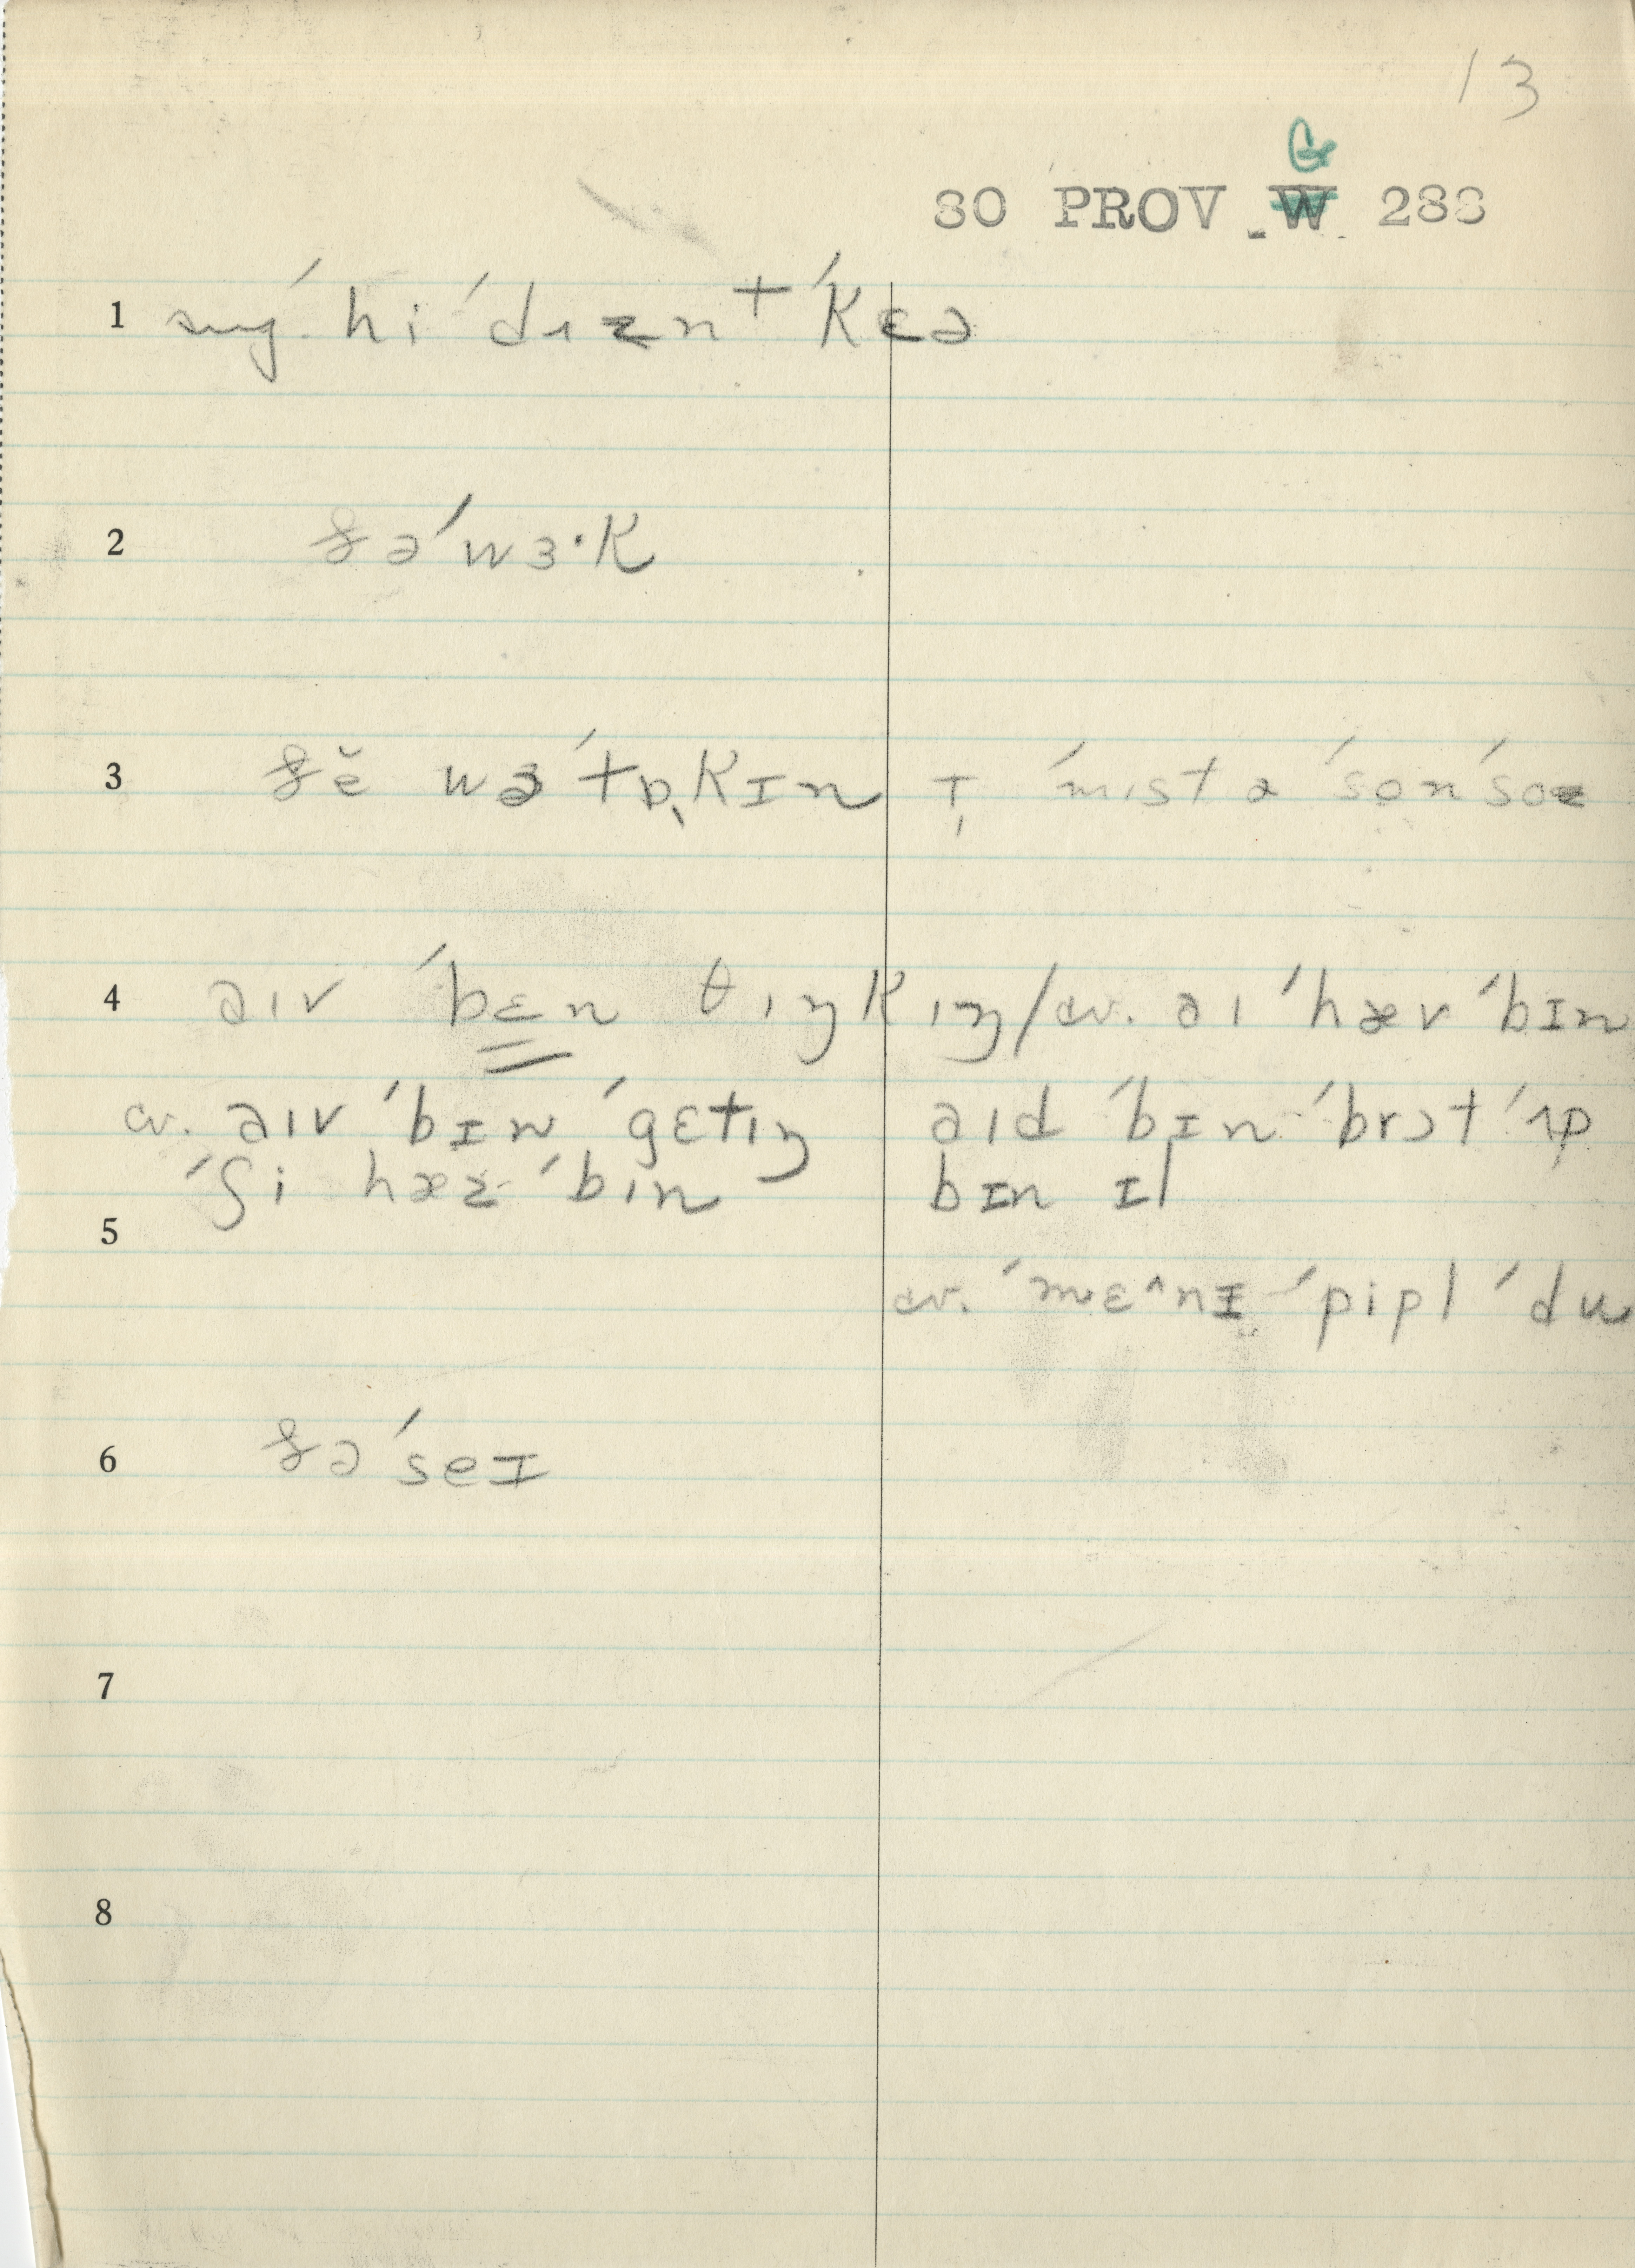 13
G
80 PROV W 288
1 sug. ˈhi ˈdɪznt ˈkɛə
2 ðə ˈwɜ·k
3 ðĕ wə ˈtɒ̜kɪn ˈmɪstə ˈsoənˈsoə
4 əɪv ˈbɛn θɪŋkɪŋ/cv. əɪ ˈhæv ˈbɪn
cv. əɪv ˈbɪn ˈgɛtɪŋ əɪd ˈbɪn ˈbrɔt ˈʌp
ˈʃi hæz ˈbɪn bɪn ɪl
5
cv. ˈmɛ^nɪ ˈpipl ˈdu
6 ðə ˈseɪ
7
8